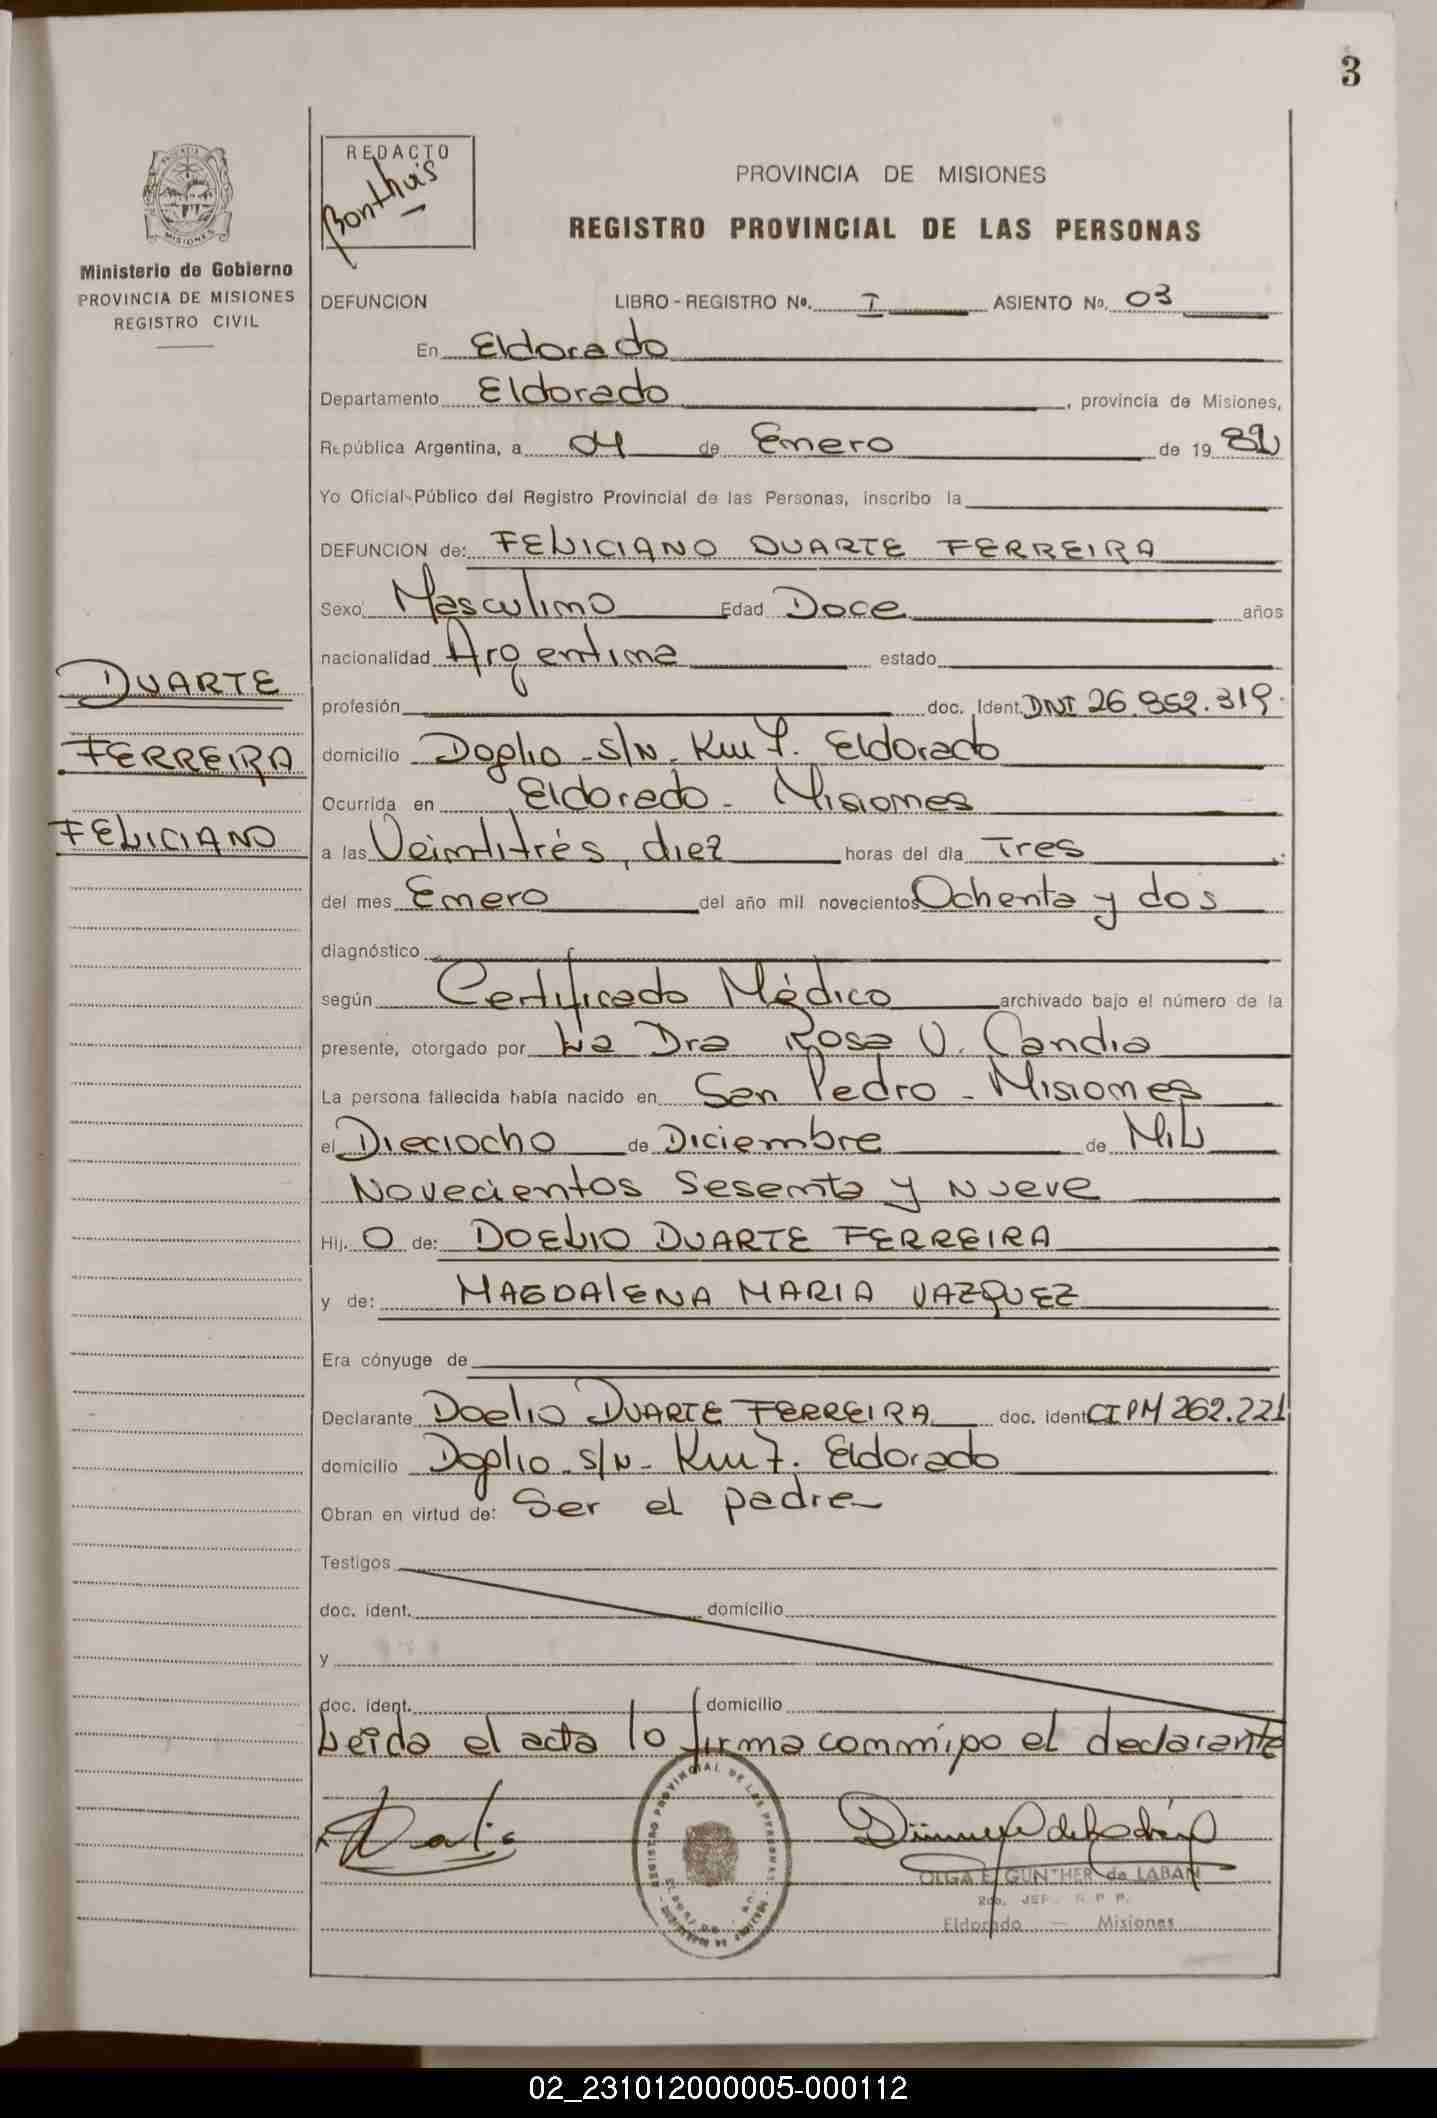 3
REDACTO
Bonthuis
PROVINCIA DE MISIONES
REGISTRO PROVINCIAL DE LAS PERSONAS
PROVINCIA
MISIONES
Ministerio de Gobierno
PROVINCIA DE MISIONES
REGISTRO CIVIL
DUARTE
FERREIRA
FELICIANO
DEFUNCION LIBRO - REGISTRO Nº. I ASIENTO Nº. 03
En Eldorado
Departamento Eldorado, provincia de Misiones,
República Argentina, a 04 de Enero de 19 82
Yo Oficial Público del Registro Provincial de las Personas, inscribo la
DEFUNCION de: FELICIANO DUARTE FERREIRA
Sexo Masculino Edad Doce años
nacionalidad Argentina estado
profesión doc. Ident. DNI 26.852.319.
domicilio Doglio - S/N - Km 7. Eldorado
Ocurrida en Eldorado - Misiones
a las Veintitrés, diez horas del día Tres
del mes Enero del año mil novecientos Ochenta y dos
diagnóstico
según Certificado Médico archivado bajo el número de la
presente, otorgado por La Dra Rosa V. Candia
La persona fallecida había nacido en San Pedro - Misiones
el Dieciocho de Diciembre de Mil
Novecientos Sesenta y Nueve
Hij. O de: DOELIO DUARTE FERREIRA
y de: MAGDALENA MARIA VAZQUEZ
Era cónyuge de
Declarante Doelio DUARTE FERREIRA doc. ident CI PM 262.221
domicilio Doglio - S/N - Km 7. Eldorado
Obran en virtud de: Ser el padre
Testigos
doc. ident. domicilio
y
doc. ident. domicilio
Leída el acta lo firma conmigo el declarante
REGISTRO PROVINCIAL DE LAS PERSONAS
OLGA E. GUNTHER de LABAN
2do. JEF. R P P.
Eldorado — Misiones
02_231012000005-000112